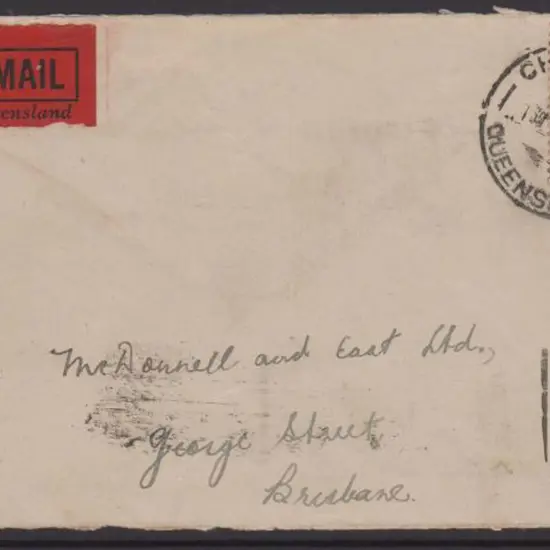 MAIL
ensland
CH
QUEENS
McDonnell and East Ltd.,
George Street
Brisbane.